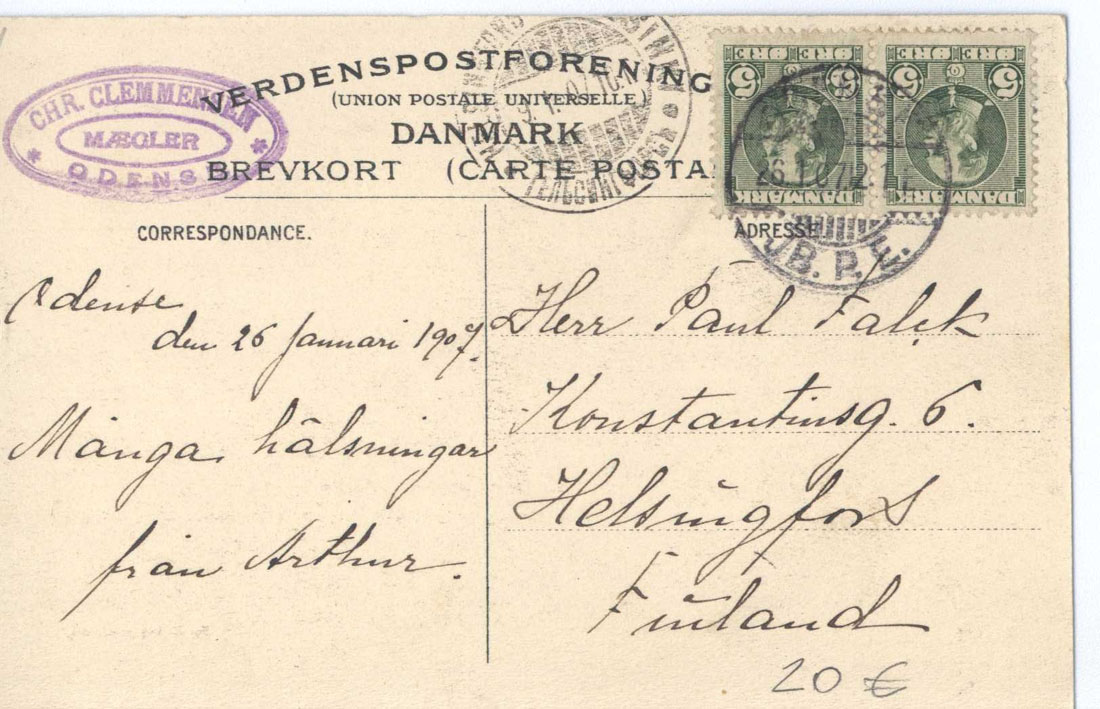 VERDENSPOSTFORENING
(UNION POSTALE UNIVERSELLE)
DANMARK
BREVKORT (CARTE POSTA
CHR. CLEMMENSEN
MÆGLER
* ODENSE *
5 5
ØRE ØRE
DANMARK
5 5
ØRE ØRE
DANMARK
26.1.07
JB. P. E.
CORRESPONDANCE.
Odense
den 26 Januari 1907.
Många hälsningar
från Arthur.
ADRESSE.
Herr Paul Falck
Konstantinsg. 6.
Helsingfors
Finland
20 €